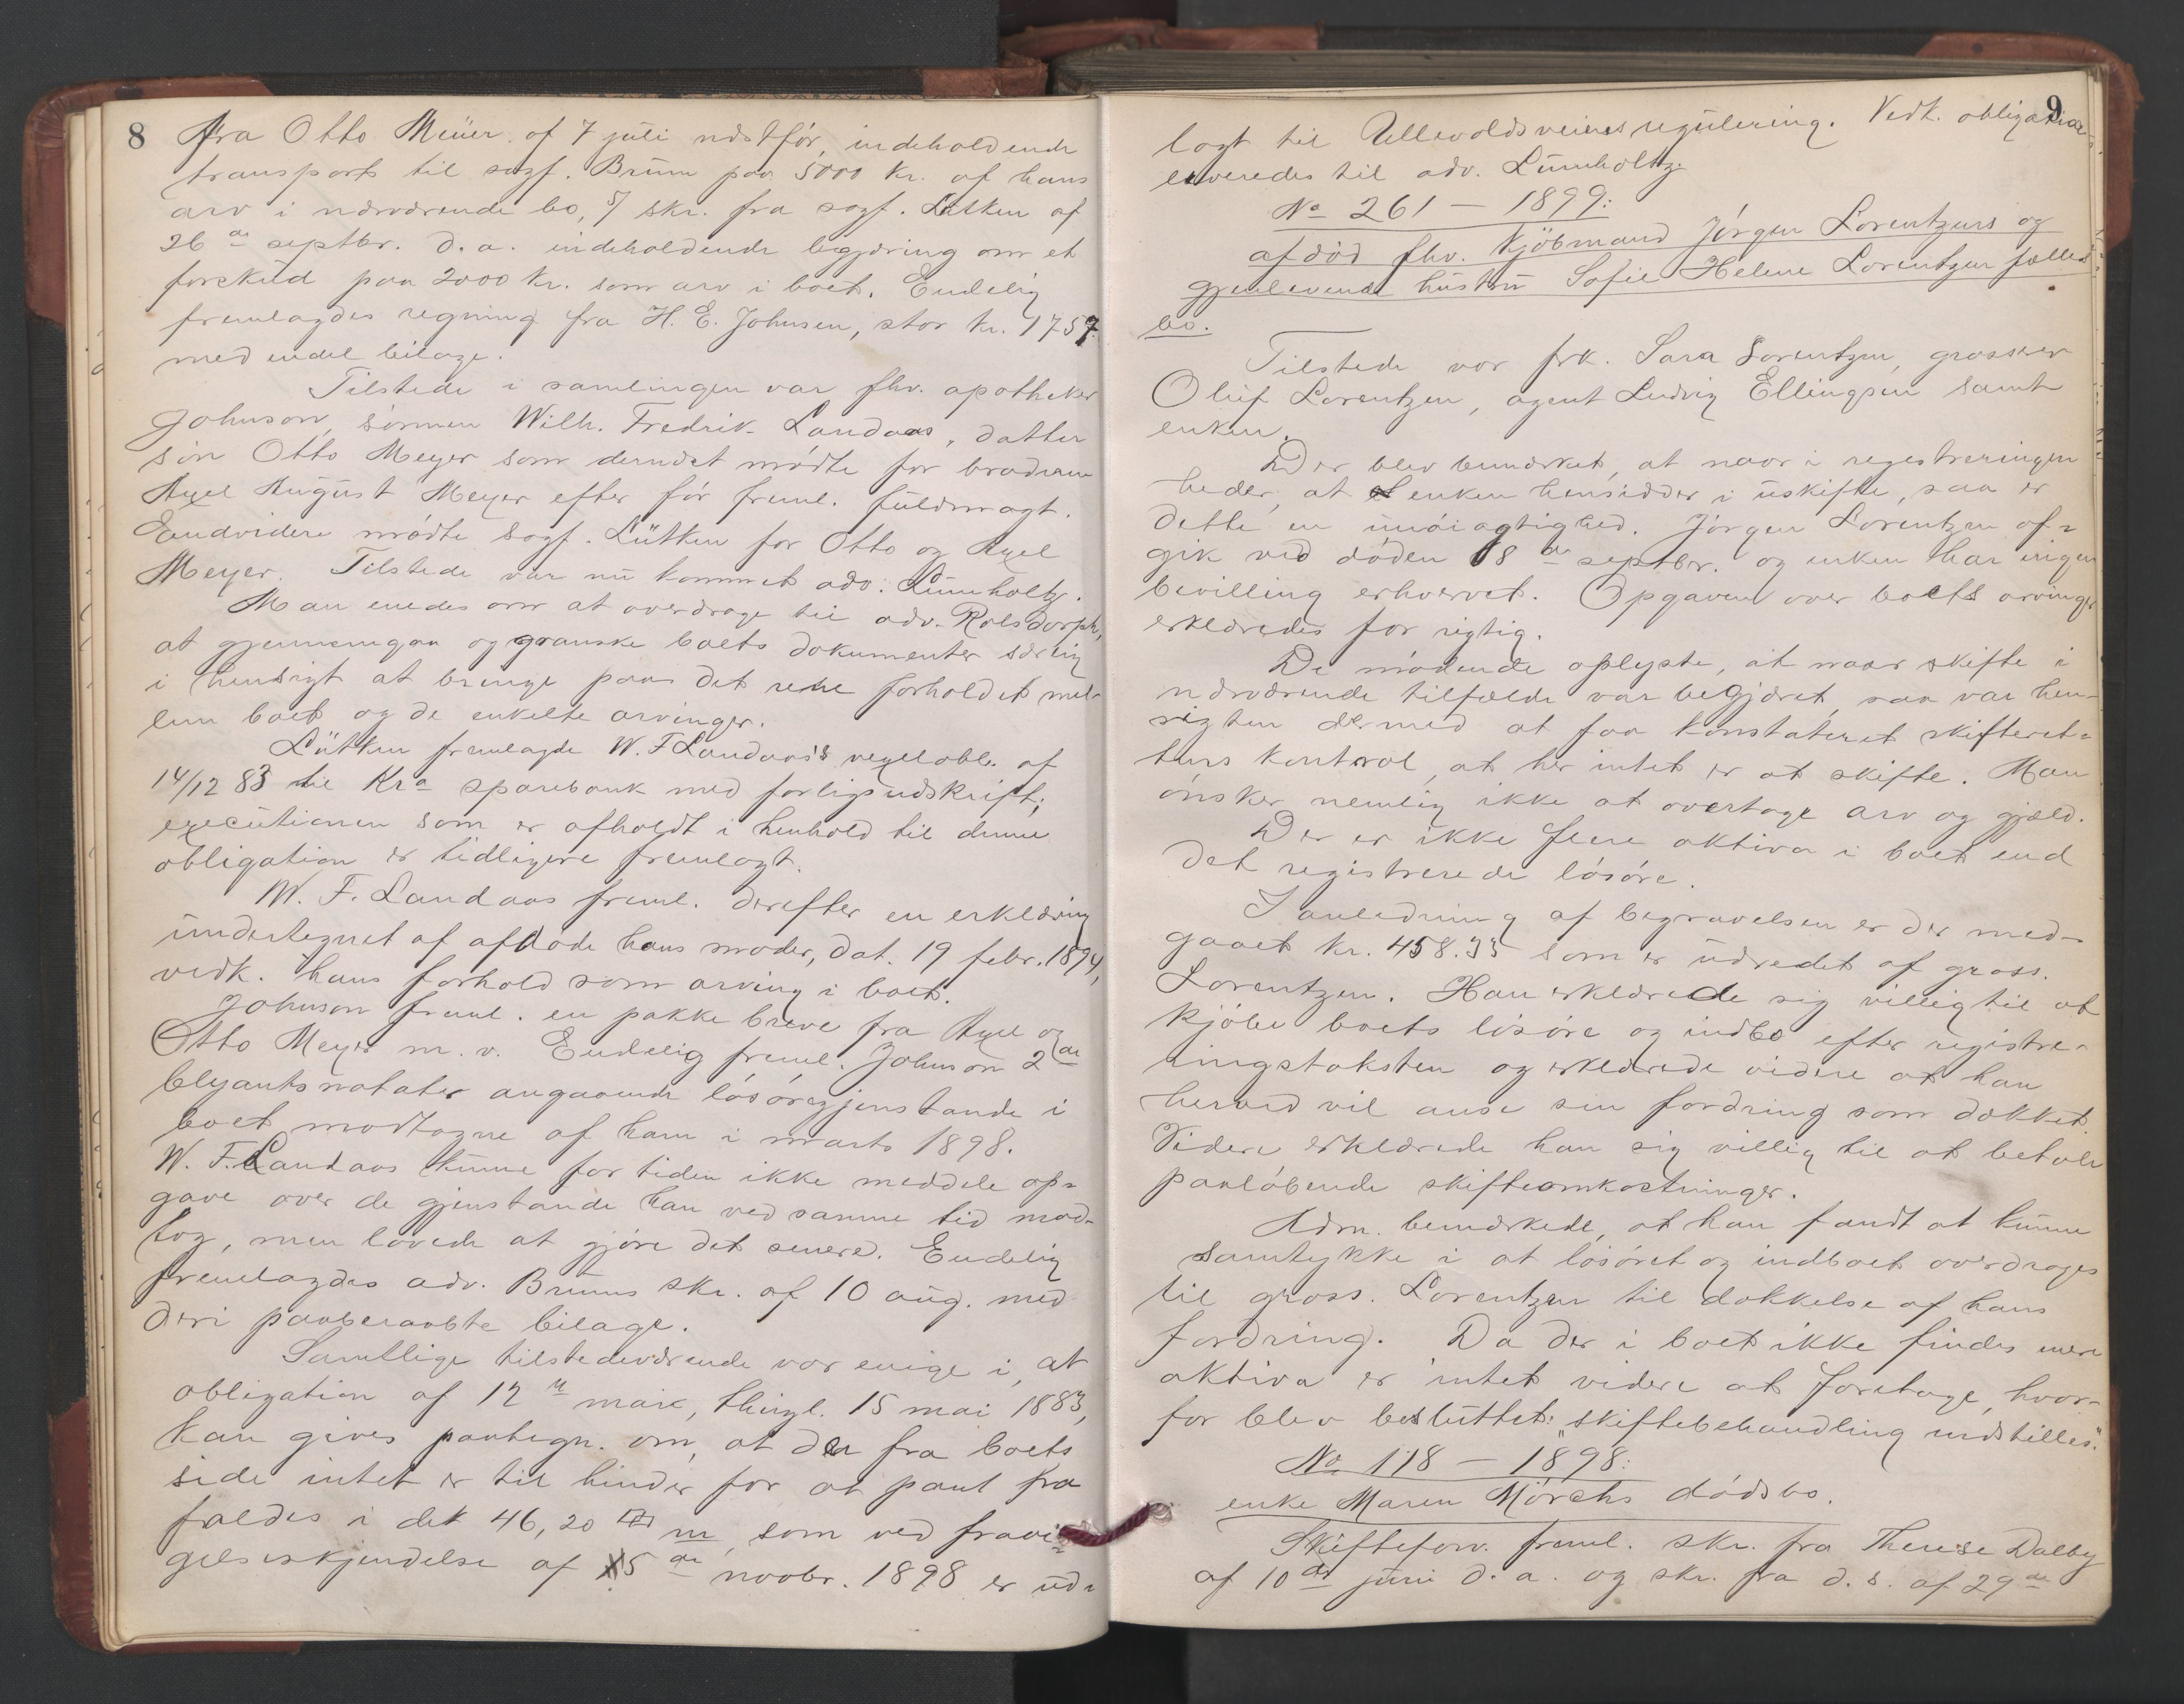 8
fra Otto Meüer af 7 jüli ndstfór, indeholdende
transport til sagf. Brüun paa 5000 kr. af hans
arv i nærværende bo, 5/ skr. fra sagf. Lütken af
26de septbr. d.a. indeholdende begjæring om et
forskud paa 2000 kr. som arv i boet. Endelig
fremlagdes regning fra H. E. Johnsen, stor kr. 1757.
med endel bilage.
Tilstede i samlingen var fhv. apotheker
Johnson, sönnen Wilh. Fredrik Landaas, datter
sön Otto Meyer som derndst mødte for broderen
Axel Aügüst Meyer efter för freml. füldmagt.
Endvidere mødte sagf. Lütken for Otto og Axel
Meyer. Tilstede var nü kommet adv. Lümholtz.
Man enedes om at overdrage til adv. Rolsdorph,
at gjennemgaa og granske boets dokumenter særlig
i hensigt at bringe paa det rene forholdet mel-
lem boet og de enkelte arvinger.
Lütken fremlagde W. F. Landaas's vexelobl. af
14/12 83 til Kra sparebank med forligsudskrift;
execütionen som er afholdt i henhold til denne
obligation er tidligere fremlagt.
W. F. Landaas freml. derefter en erklæring
ündertegnet af afdøde hans moder, dat. 19 febr. 1894,
vedk. hans forhold som arving i boet.
Johnson freml. en pakke breve fra Axel og
Otto Meyer m. v. Endelig freml. Johnson 2de
blyantsnotater angaaende lösöregjenstande i
boet modtagne af ham i marts 1898.
W. F. Landaas künne for tiden ikke meddele op-
gave over de gjenstande han ved samme tid mod-
tog, men lovede at gjøre det senere. Endelig
fremlagdes adv. Brüuns skr. af 10 aüg. med
deri paaberaabte bilage.
Samtlige tilstedeværende var enige i, at
obligation af 12te mai, thingl. 15 mai 1883,
kan gives paategn. om, at der fra boets
side intet er til hinder for at pant fra
faldes i det 46,20 □ m, som ved fravi-
gelseskjendelse af 15de novbr. 1898 er üd-
9
lagt til Ullevoldsveiens regülering. Vedk. obligation
leveredes til adv. Lümholtz.
No 261 — 1899:
afdöd fhv. kjöbmand Jörgen Lorentzens og
gjenlevende hüstrü Sofie Helene Lorentzen fælles
bo.
Tilstede var frk. Sara Lorentzen, grosserer
Olüf Lorentzen, agent Ludvig Ellingsen samt
enken.
Der blev bemærket, at naar i registreringen
heder, at enken hensidder i üskifte, saa er
dette en ünöiagtighed. Jörgen Lorentzen af-
gik ved döden 18de septbr. og enken har ingen
bevilling erhvervet. Opgaven over boets arvinger
erklæredes for rigtig.
De mödende oplyste, at naar skifte i
nærværende tilfælde var begjæret, saa var hen-
sigten dermed at faa konstateret skifteret-
tens kontrol, at her intet er at skifte. Man
önsker nemlig ikke at overtage arv og gjæld.
Der er ikke flere aktiva i boet end
det registrerede lösöre.
I anledning af begravelsen er der med-
gaaet kr. 458.35 som er üdredet af gross.
Lorentzen. Han erklærede sig villig til at
kjöbe boets lösöre og indbo efter registre-
ringstaksten og erklærede videre at han
herved vil anse sin fordring som dækket.
Videre erklærede han sig villig til at betale
paalöbende skifteomkostninger.
Adm. bemærkede, at han fandt at künne
samtykke i at lösöret og indboet overdrages
til gross. Lorentzen til dækkelse af hans
fordring. Da der i boet ikke findes mere
aktiva er intet videre at foretage, hvor-
for blev beslüttet: "skiftebehandling indstilles".
No 118 — 1898:
enke Maren Mörchs dödsbo.
Skifteforv. freml. skr. fra Therese Dalby
af 10de jüni d. a. og skr. fra d. s. af 29de